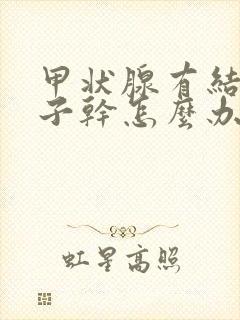 甲状腺有結
子幹怎麼办
虹星高照